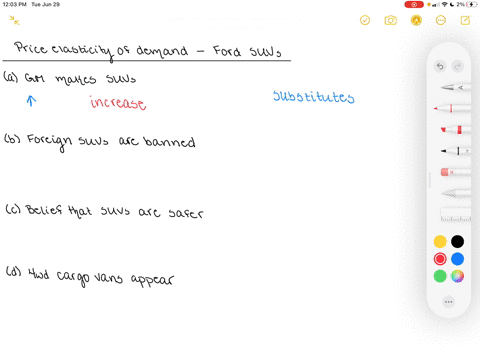 12:03 PM Tue Jun 29
2%
Price elasticity of demand – Ford SUVs
(a) GM makes SUVs
↑ increase substitutes
(b) Foreign SUVs are banned
(c) Belief that SUVs are safer
(d) 4wd cargo vans appear